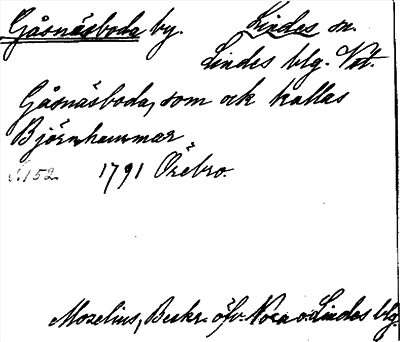 Gåsnäsboda by. Lindes sn.
Lindes blg. Vstm.
Gåsnäsboda, som ock kallas
Björnhammar
S. 152. 1791 Örebro.
Mozelius, Beskr. öfv. Nora o. Lindes blg.